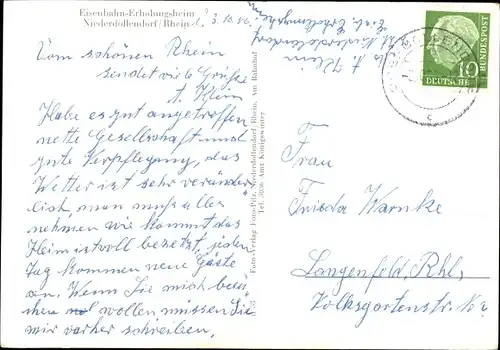 Eisenbahn-Erholungsheim
Niederdollendorf/Rhein
3.10.56
Vom schönen Rhein
sendet viele Grüße
A. Klein
Habe es gut angetroffen
nette Gesellschaft und
gute Verpflegung, das
Wetter ist sehr veränder
lich, man muß alles
nehmen wie kommt das
Heim ist voll besetzt, jeden
Tag kommen neue Gäste
an. Wenn Sie mich besu
chen wollen müssen Sie
mir vorher schreiben.
Foto-Verlag Foto-Pütz, Niederdollendorf/Rhein, Am Bahnhof
Tel. 3036 Amt Königswinter
A. Klein
Niederdollendorf
Eisb. Erholungsheim
DEUTSCHE
BUNDESPOST
10
c
Frau
Frieda Warnke
Langenfeld, Rhl,
Volksgartenstr. Nr